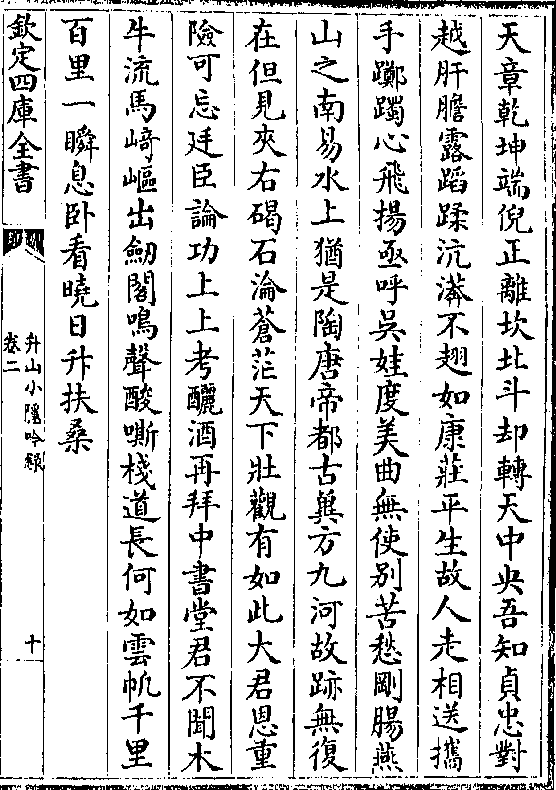 天章乾坤端倪正離坎北斗却轉天中央吾知貞忠對
越肝膽露蹈蹂沆漭不翅如康莊平生故人走相送攜
手躑躅心飛揚亟呼吳娃度美曲無使别苦愁剛腸燕
山之南易水上猶是陶唐帝都古冀方九河故跡無復
在但見夾右碣石淪蒼茫天下壯觀有如此大君恩重
險可忘廷臣論功上上考釃酒再拜中書堂君不聞木
牛流馬﨑嶇出劒閣鳴聲酸嘶棧道長何如雲帆千里
百里一瞬息卧看曉日升扶桑
欽定四庫全書
升山小隱吟録
卷二
十